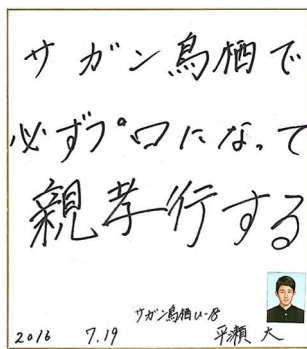 サガン鳥栖で
必ずプロになって
親孝行する
サガン鳥栖U-18
2016 7.19 平瀬 大